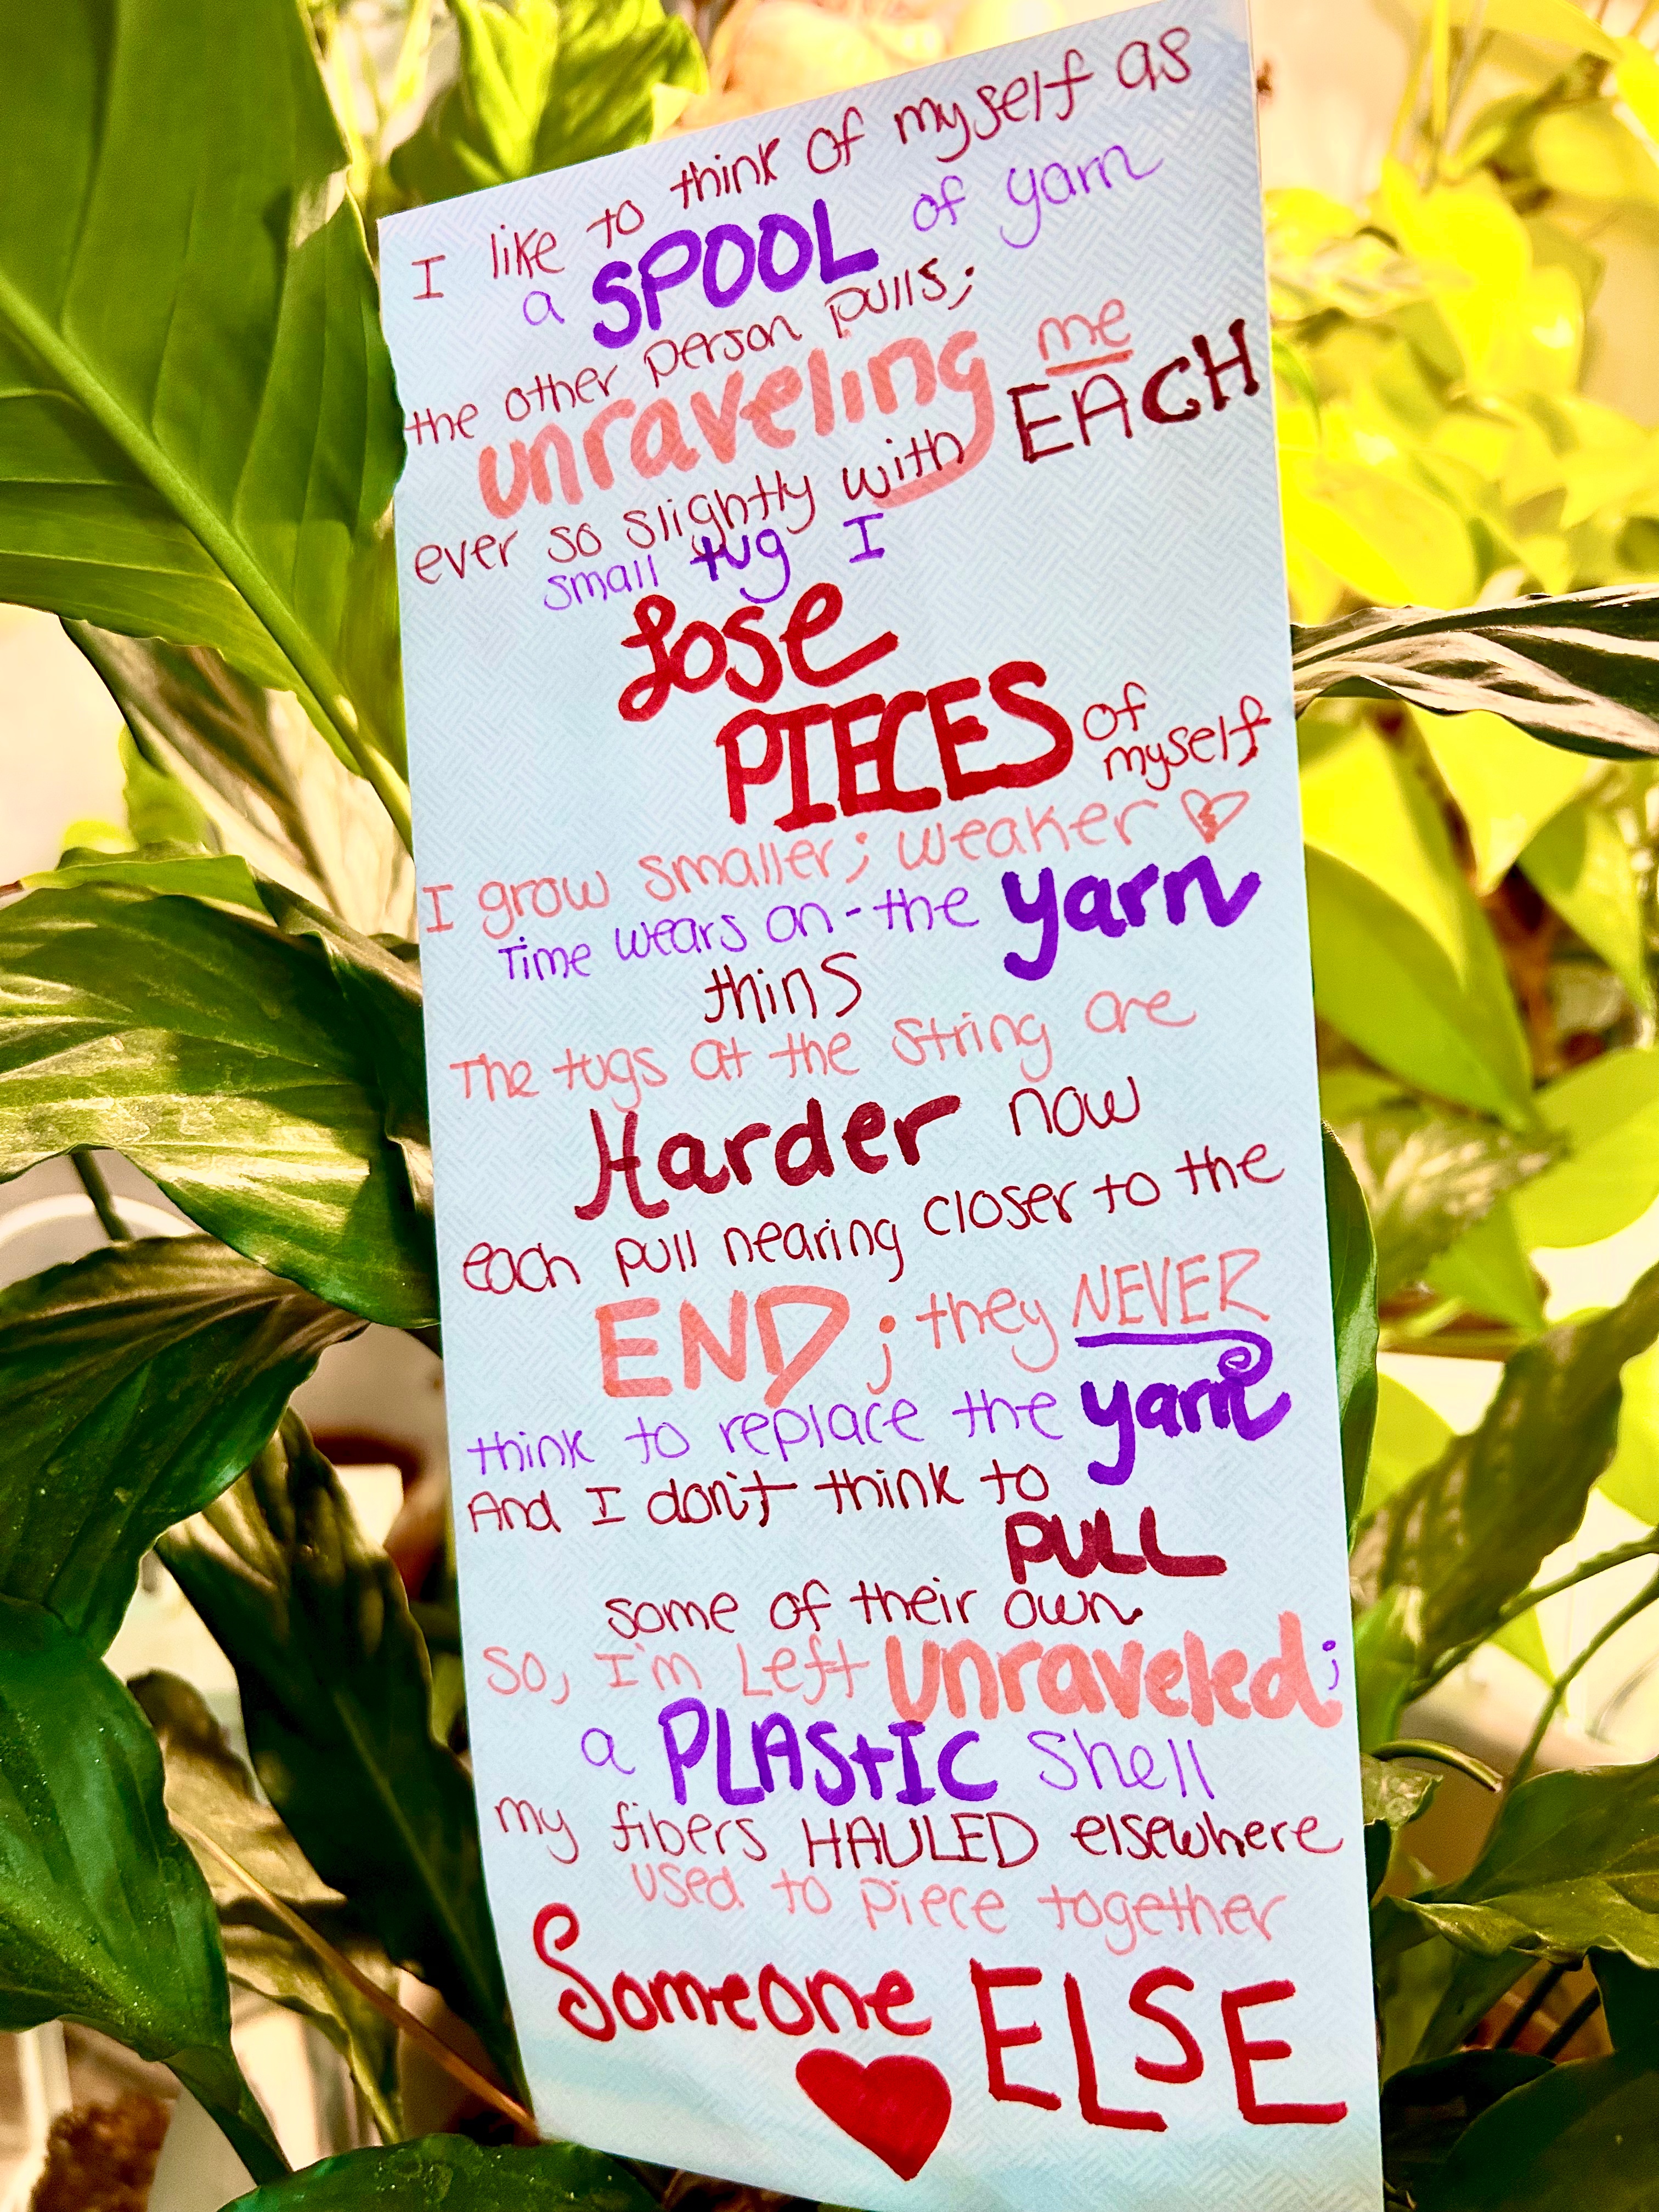 I like to think of myself as
a SPOOL of yarn
the other person pulls;
unraveling me
ever so slightly with EACH
small tug I
Lose
PIECES of
myself
I grow smaller; weaker
Time wears on-the yarn
thins
The tugs at the string are
Harder now
each pull nearing closer to the
END; they NEVER
think to replace the yarn
And I don't think to
PULL
some of their own
so, I'm Left Unraveled;
a PLAStIC shell
my fibers HAULED elsewhere
used to piece together
Someone ELSE